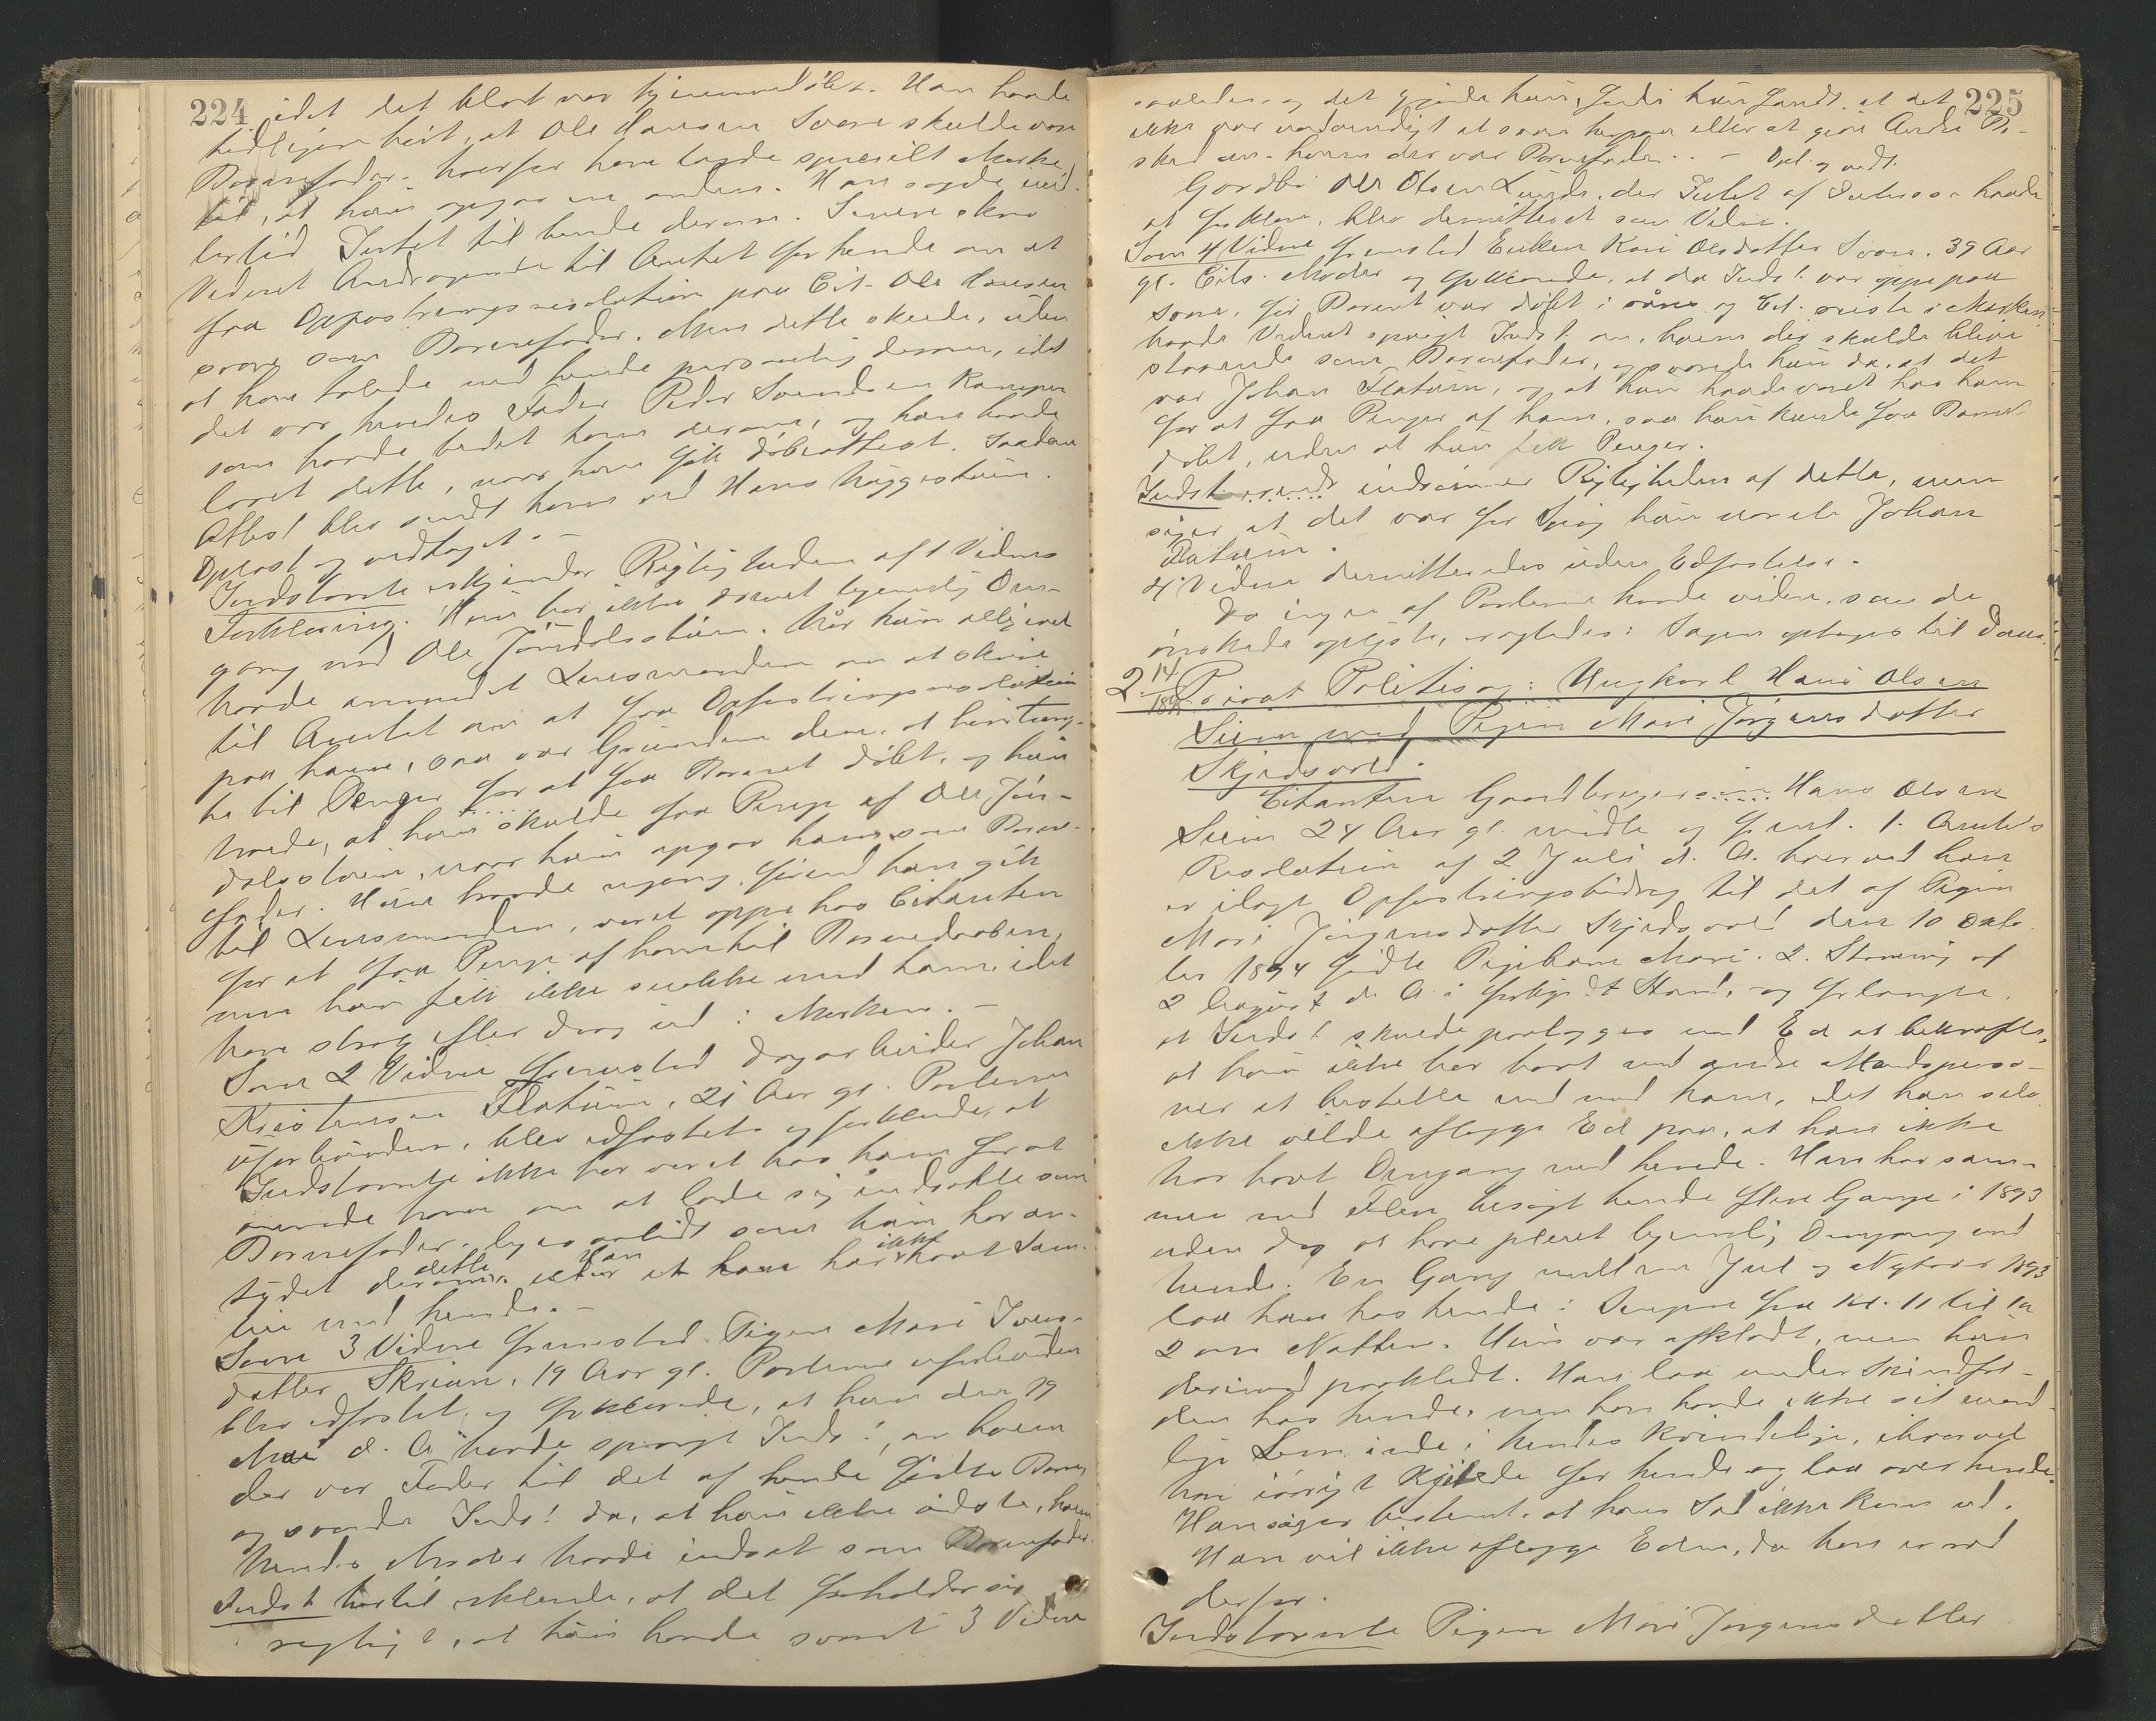 224
idet det blot var hjemmedøbt. Han havde
tidligere hørt, at Ole Hansen Svare skulde være
Barnefader, hvorfor han lagde specielt Mærke
til, at hun opgav en anden. Han sagde imid-
lertid Intet til hende derom. Senere skrev
Vidnet Andragende til Amtet for hende om at
faa Opfostringsresolution paa Cit. Ole Hansen
som Barnefader. Men dette skede, uden
at have talede med hende personlig derom, idet
det var hendes Fader Peder Svendsen Kampen
som havde bedet ham derom, og han havde
lovet dette, naar han fik Døbeattest. Saadan
Attest blev sendt ham ved Hans Haggestuen.
Oplæst og vedtaget. –
Indstævnte erkjender Rigtigheden af 1 Vidnes
Forklaring. Hun har ikke drevet legemlig Om-
gang med Ole Jøndalsstuen. Når hun alligevel
havde anmodet Lensmanden om at skrive
til Amtet om at faa Opfostringsresolution
paa ham, saa var Grunden den, at hun træng-
te til Penge for at faa Barnet døbt, og hun
troede, at hun skulde faa Penge af Ole Jøn-
dalsstuen, naar hun opgav ham som Barne-
fader. Hun havde engang, førend hun gik
til Lensmanden, været oppe hos Citanten
for at faa Penge af ham til Barnedaaben,
men hun fik ikke snakke med ham, idet
han strax efter drog ud i Marken. –
Som 2 Vidne fremstod Dagarbeider Johan
Kristensen Flatuen, 21 Aar gl. Parterne
uforbunden, blev edfæstet og forklarede, at
Indstævnte ikke har været hos ham for at
anmode ham om at lade sig indsætte som
Barnefader, ligesaalidt som hun har an-
tydet dette. Han at han har ikke havt Sam-
leie med hende. –
Som 3 Vidne fremstod Pigen Mari Iver-
datter Skriun, 19 Aar gl. Parterne uforbunden
blev edfæstet, og forklarede, at hun den 19
Mai d. A. havde spurgt Indst., om hvem
der var Fader til det af hende fødte Barn,
og svarede Indst. da, at hun ikke vidste, hvem
hendes Moder havde indsat som Barnefader.
Indst. hertil erklærede, at det forholder sig
rigtigt, at hun havde svaret 3 Vidne
225
saaledes, og det gjorde hun, fordi hun fandt, at det
ikke var nødvendigt at svare herpaa eller at give Andre Be-
sked om hvem der var Barnefader. – Opl. og vedt.
Gardbr. Ole Olsen Lunde, der Intet af Interesse havde
at forklare, blev demitteret som Vidne.
Som 4 Vidne fremstod Enken Kari Olsdatter Svare, 39 Aar
gl. Cits. Moder og forklarede, at da Indst. var oppe paa
Svare, før Barnet var døbt i og Cit. reiste i Marken
havde Vidnet spurgt Indst. om, hvem der skulde blive
staaende som Barnefader, og svarede hun da, at det
var Johan Flatuen, og at hun havde været hos ham
for at faa Penger af ham, saa hun kunde faa Barnet
døbt, uden at hun fik Penger.
Indst. indrømmer Rigtigheden af dette, men
siger at det var for Spøg hun nævnte Johan
Flatuen.
4 Vidne demitteredes uden Edfæstelse.
Da ingen af Parterne havde videre, som de
ønskede oplyst, vagtedes: Sagen optages til Doms
2 14/1895 Privat Politisag: Ungkarl Hans Olsen
Siem mod Pigen Mari Jørgensdatter
Skjedsvold.
Citanten Gaardbruger Hans Olsen
Siem 24 Aar gl. mødte og freml. 1. Amtets
Resolution af 2 Juli d. A. hvorved han
er ilagt Opfostringsbidrag til det af Pigen
Mari Jørgensdatter Skjedsvold den 10 Okto-
ber 1894 fødte Pigebarn Mari. 2. Stævning af
2 August d. A. i forkyndt Stand, og forlangte,
at Indst. skulde paalægges med Ed at bekræfte,
at hun ikke har havt med andre Mandsperso-
ner at bestille end med ham, idet han selv
ikke vilde aflægge Ed paa, at han ikke
har havt Omgang med hende. Han har sam-
men med Flere besøgt hende flere Gange i 1893
uden dog at have pleiet legemlig Omgang med
hende. En Gang mellem Jul og Nytaar 1893
laa han hos hende i Sengen fra Kl. 11 til
2 om Natten. Hun var afklædt, men han
derimod paaklædt. Han laa under Skindfel-
den hos hende, men han havde ikke sit mand-
lige Lem inde i hendes kvindelige, ihvorvel
han iøvrigt kjælede for hende og laa over hende.
Han siger bestemt, at hans Sæd ikke kom ud.
Han vil ikke aflægge Eden, da han er ræd
derfor.
Indstævnte Pigen Mari Jørgensdatter